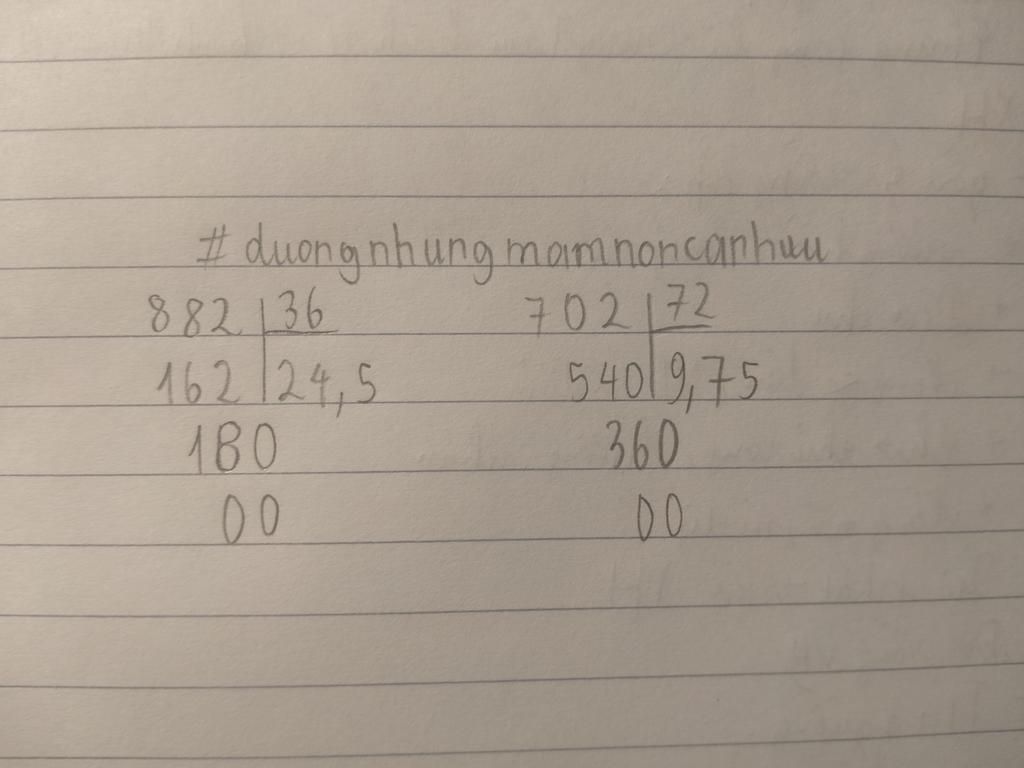 # duongnhungmamnoncanhuu
882 36 702 72
162 24,5 540 9,75
180 360
00 00